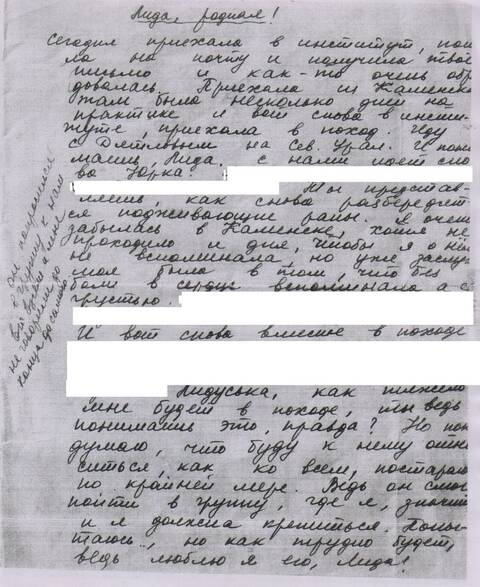 Лида, родная!
Сегодня приехала в институт, пош
ла на почту и получила твоё
письмо и как-то очень обра
довалась. Приехала из Каменска
там была несколько дней на
практике и вот снова в инсти-
туте, приехала в поход. Иду
с Дятловым на Сев. Урал. И пони
маешь, Лида, с нами идет сно
ва Юрка.
Ты представ-
ляешь, как снова разбередят
ся подживающие раны. Я очень
забылась в Каменске, хотя не
проходило и дня, чтобы я о нём
не вспоминала, но уже заслу
моя была в том, что без
боли в сердце вспоминала а с
грустью.
И вот снова вместе в походе
Лидуська, как тяжело
мне будет в походе, ты ведь
понимаешь это, правда? Но пока
думаю, что буду к нему отно
ситься, как ко всем, постараюсь
по крайней мере. Ведь он смог
пойти в группу, где я, значит
и я должна крепиться. Попы-
таюсь.., но как трудно будет,
ведь люблю я его, Лида!
он попросился
в группу к нам
не говорили до
конца до самого